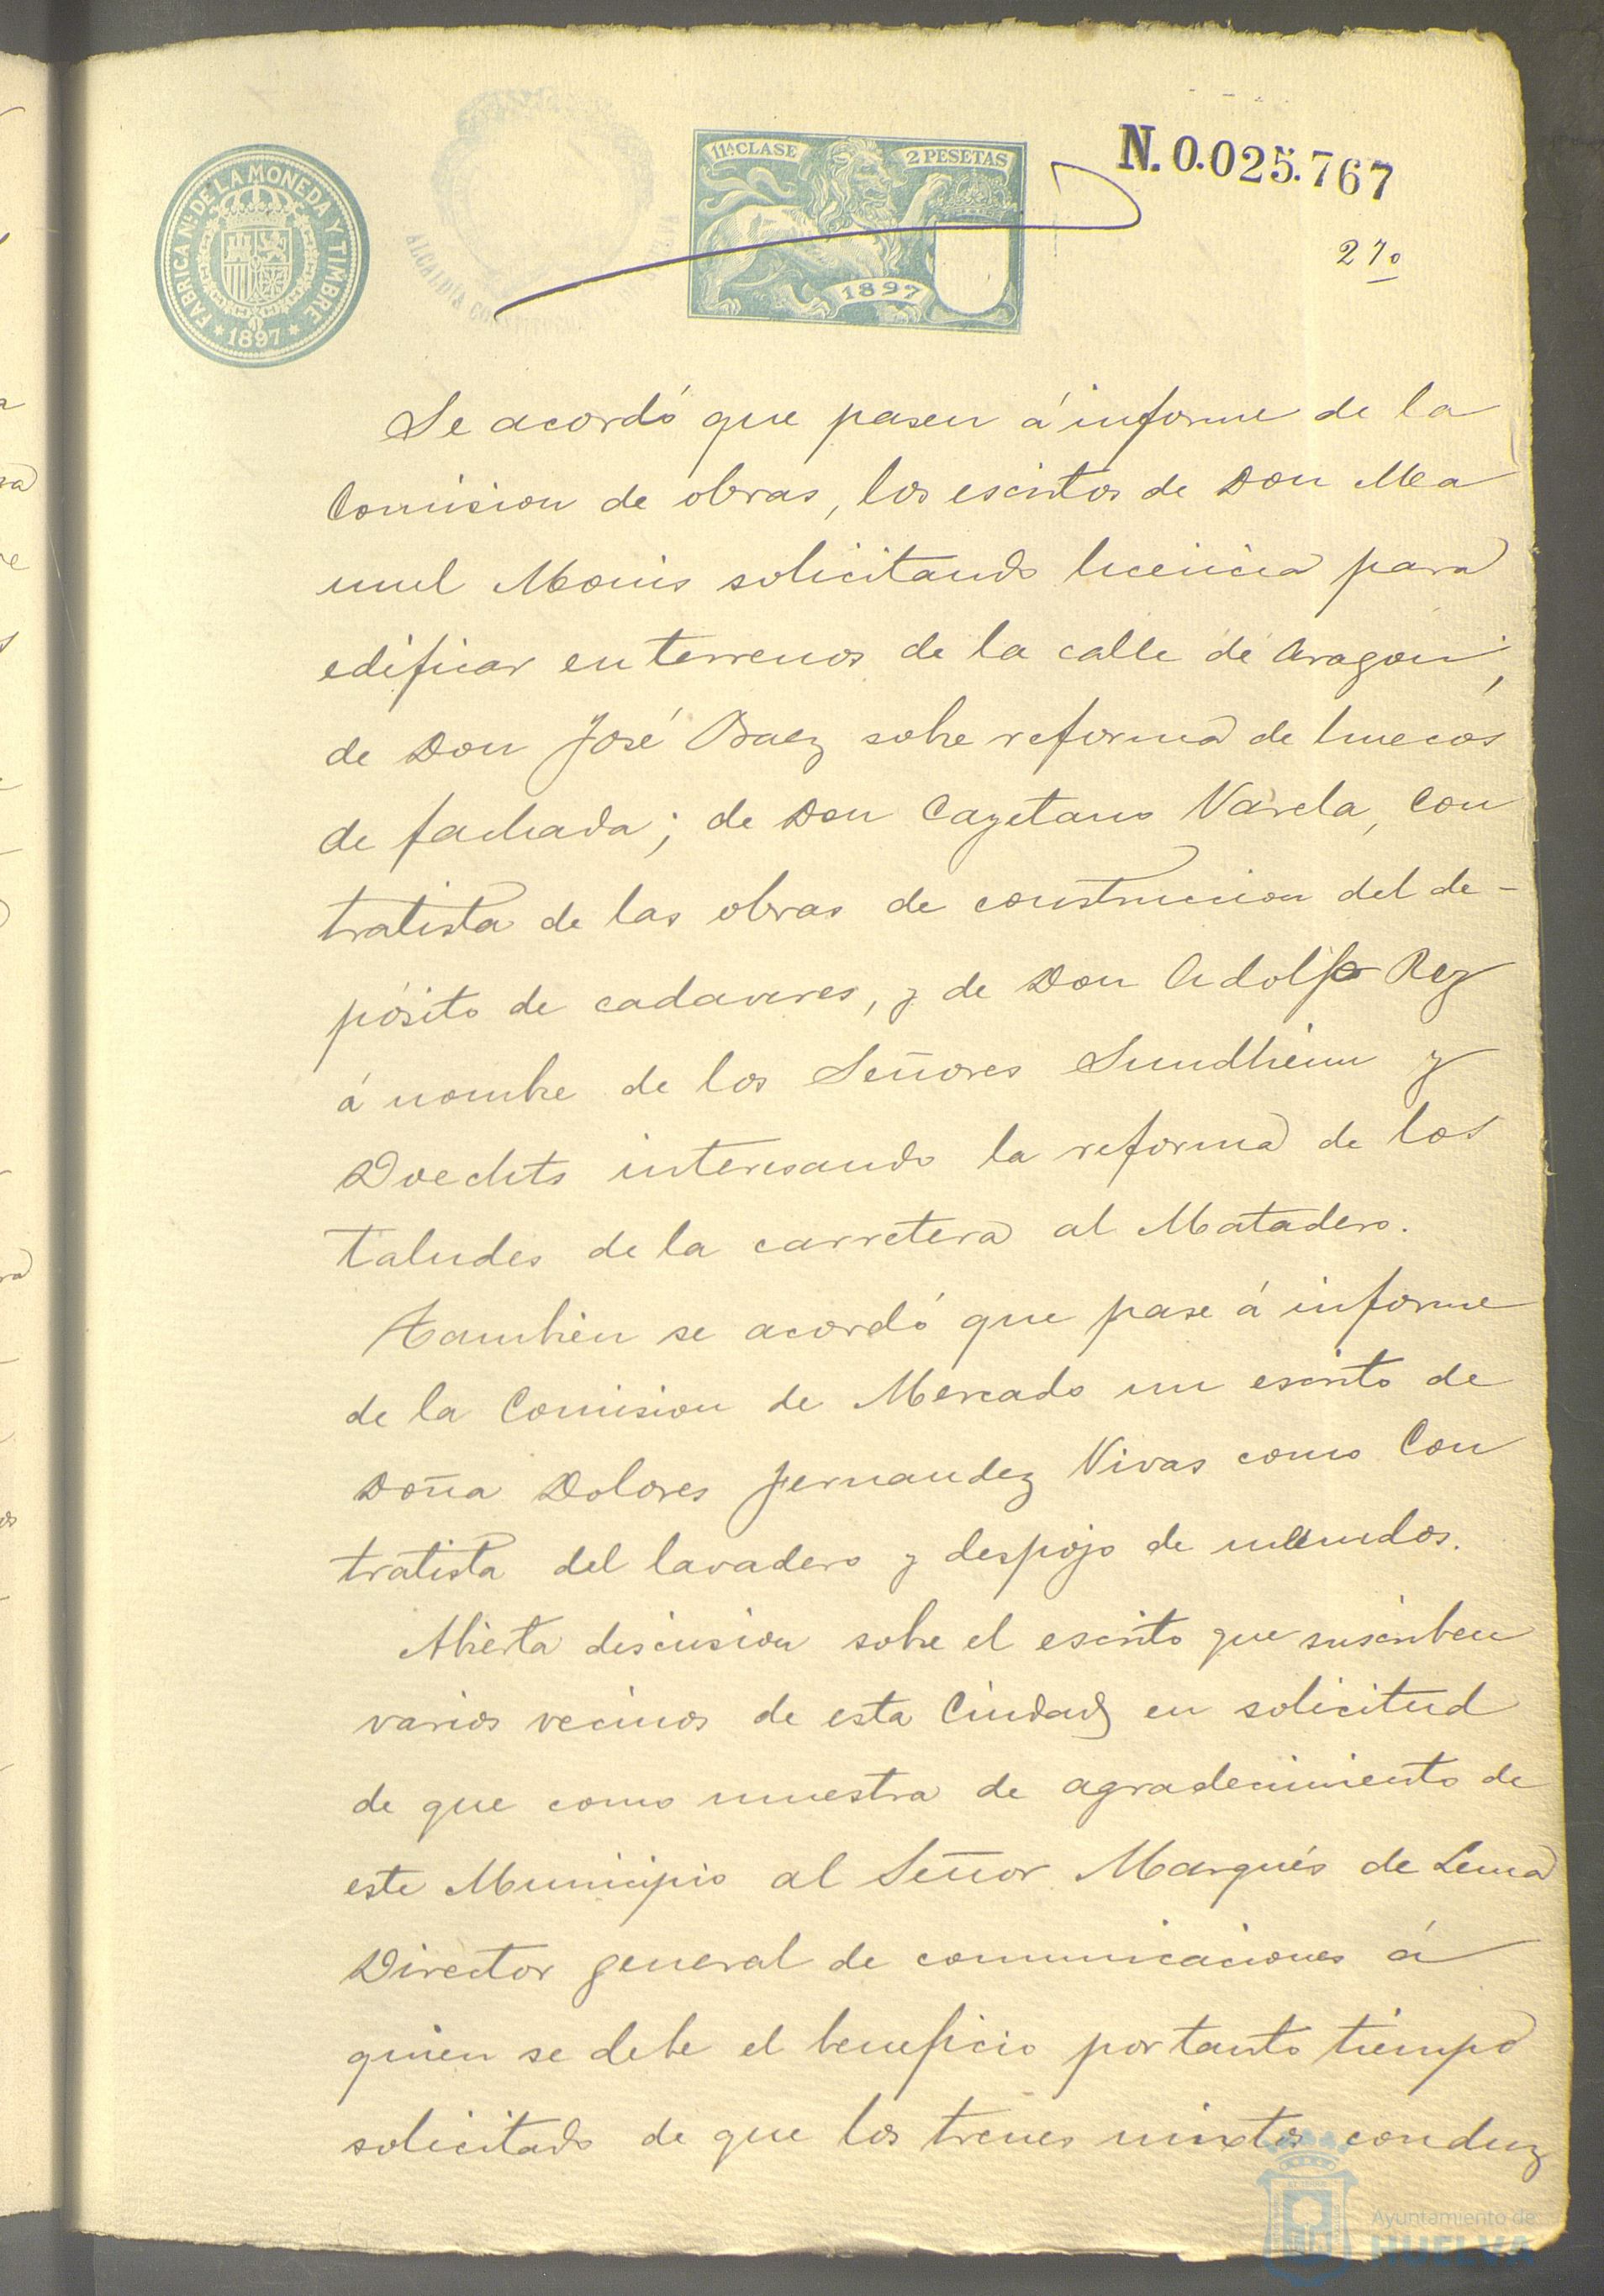 FABRICA NL. DE LA MONEDA Y TIMBRE
* 1897 *
ALCALDÍA CONSTITUCIONAL
11ª CLASE
2 PESETAS
1897
N.0.025.767
Se acordó que pasen á informe de la
Comision de obras, los escritos de Don Ma
nuel Monis solicitando licencia para
edificar en terrenos de la calle de Aragon;
de Don José Baez sobre reforma de huecos
de fachada; de Don Cayetano Varela, Con
tratista de las obras de construccion del de-
pósito de cadaveres, y de Don Adolfo Rey
á nombre de los Señores Sundheim y
Doechts interesando la reforma de los
taludes de la carretera al Matadero.
Tambien se acordó que pase á informe
de la Comision de Mercado un escrito de
Doña Dolores Fernandez Vivas como Con
tratista del lavadero y despojo de menudos.
Abierta discusion sobre el escrito que suscriben
varios vecinos de esta Ciudad en solicitud
de que como muestra de agradecimiento de
este Municipio al Señor Marqués de Lema
Director general de comunicaciones á
quien se debe el beneficio por tanto tiempo
solicitado de que los trenes mixtos conduz
Ayuntamiento de
HUELVA